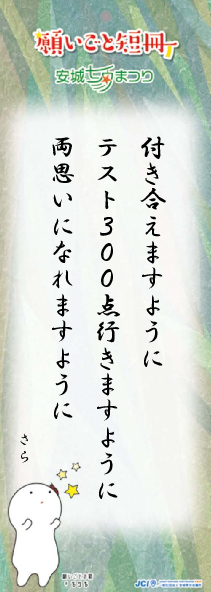 願いごと短冊
安城七夕まつり
付き合えますように
テスト300点行きますように
両思いになれますように
さら
JCI